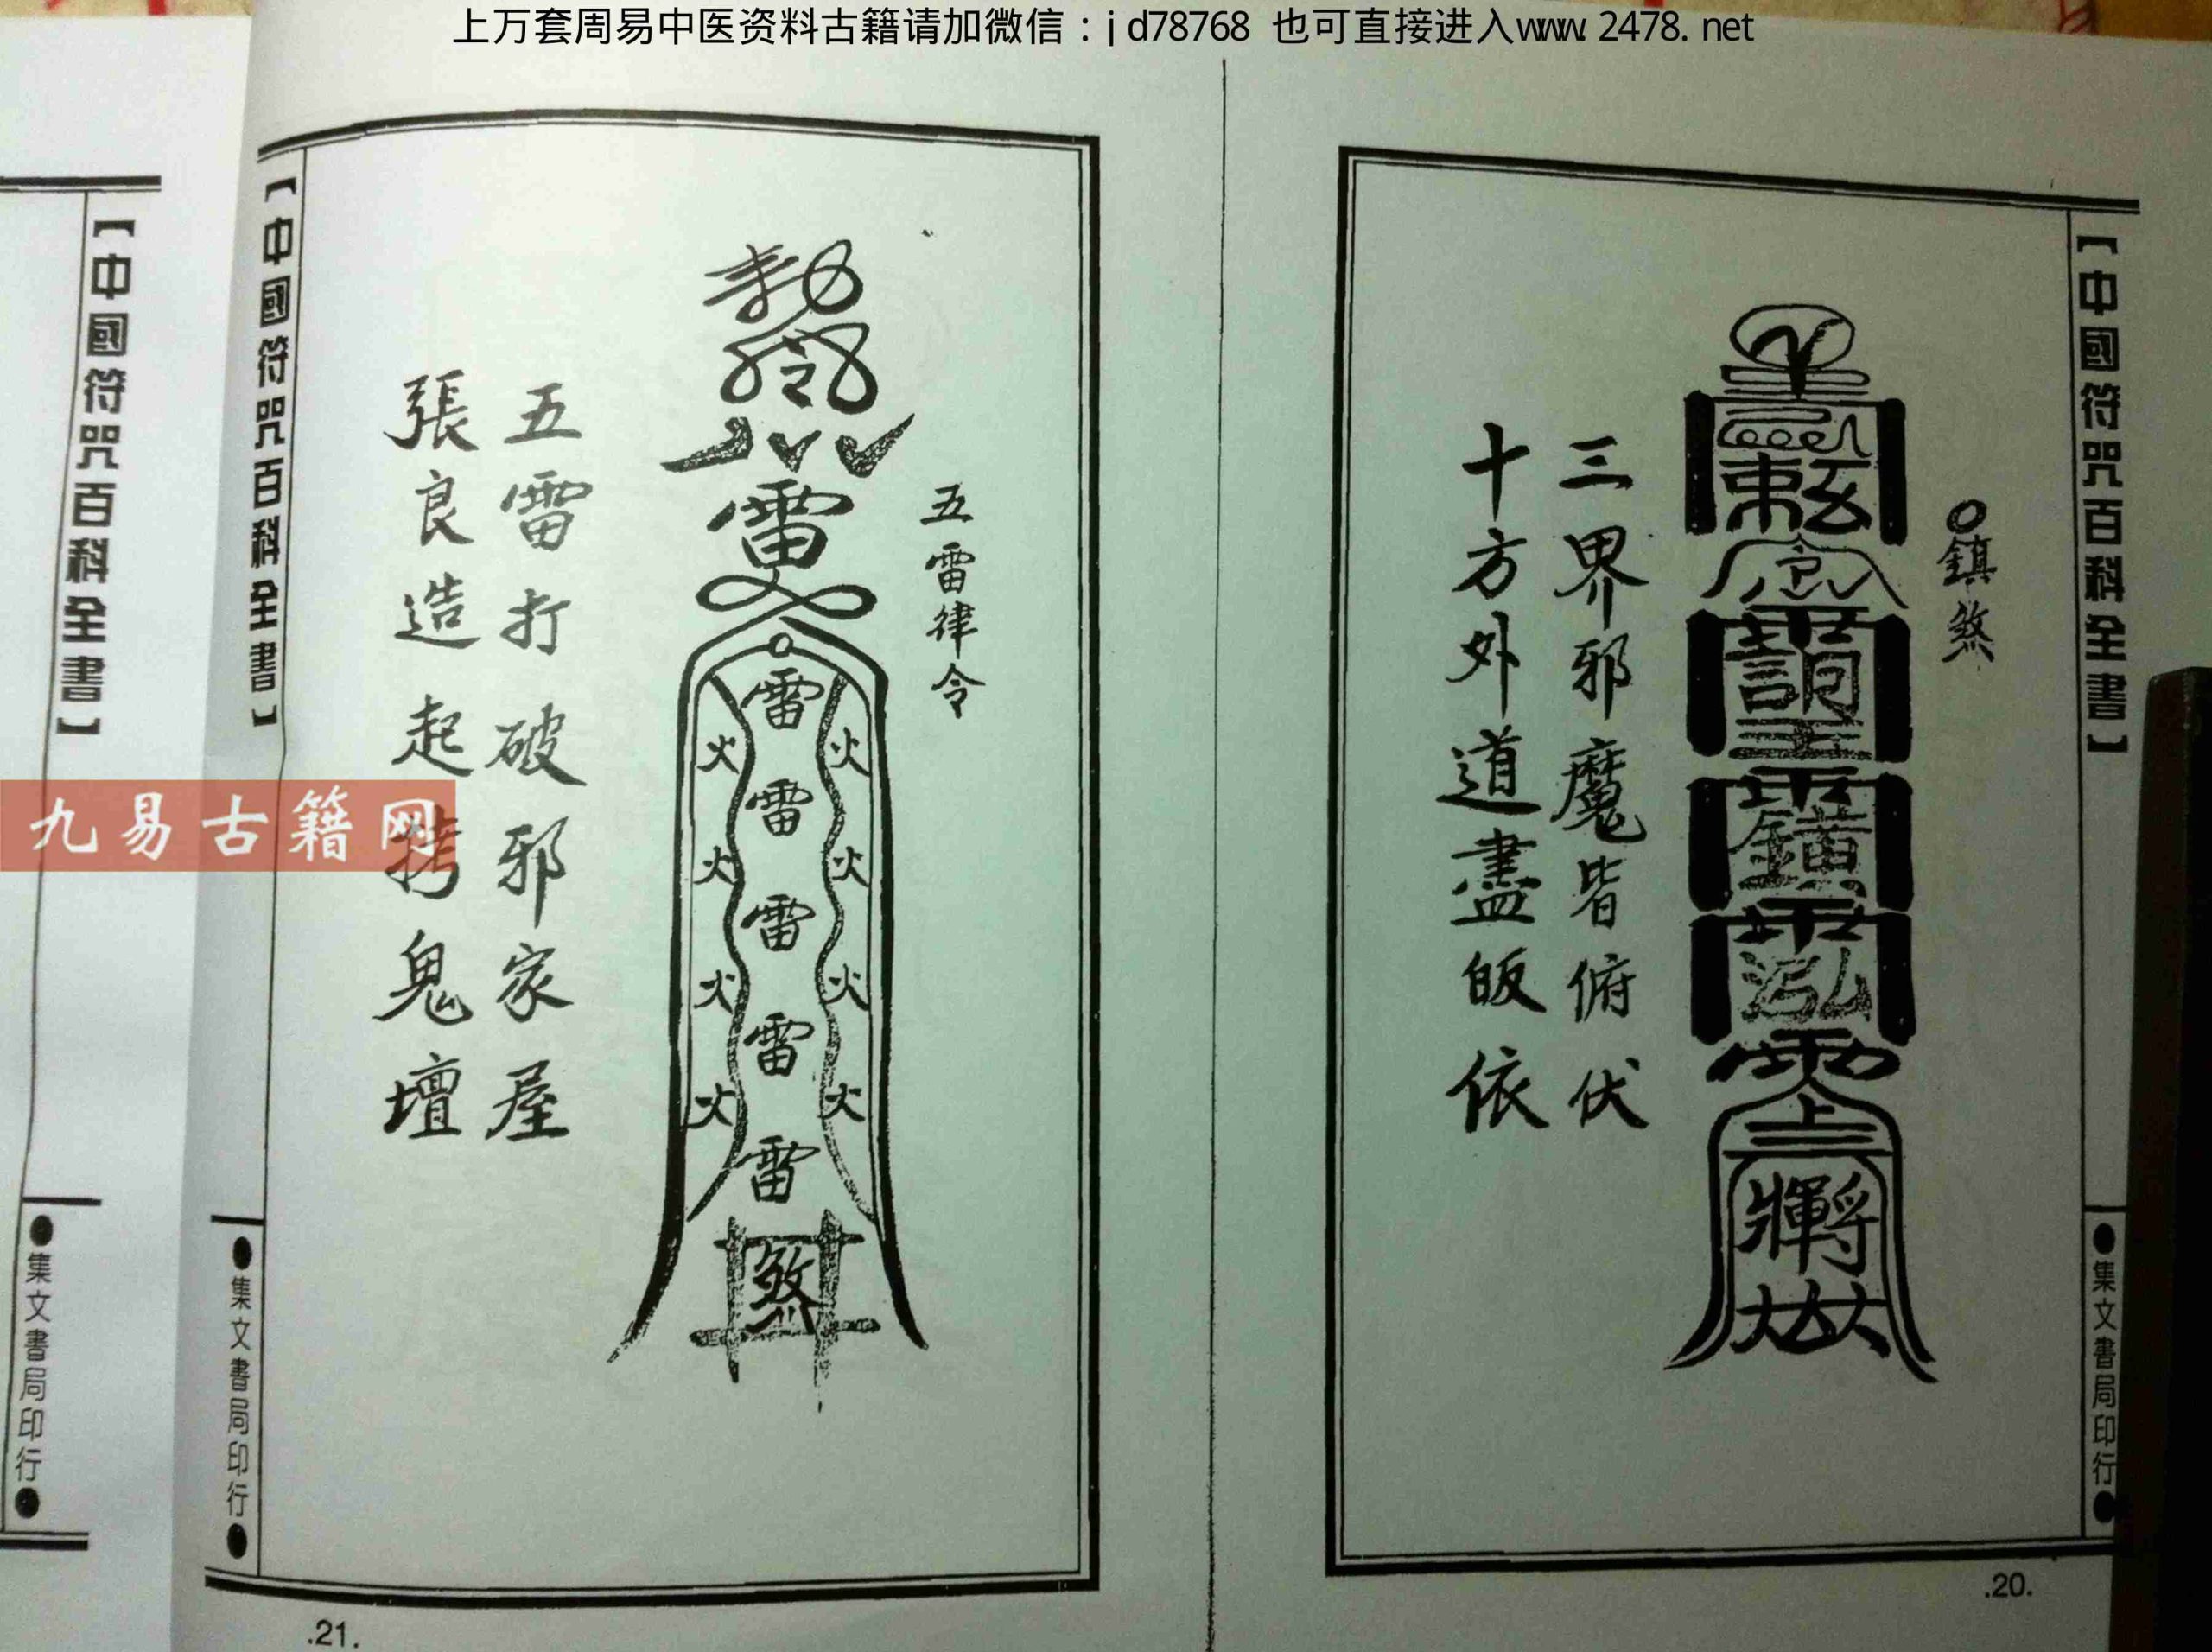 上万套周易中医资料古籍请加微信：jd78768 也可直接进入www.2478.net
【中國符咒百科全書】
●集文書局印行●
○鎮煞
三界邪魔皆俯伏
十方外道盡皈依
.20.
五雷律令
雷
雷
雷
雷
雷
雷
火
火
火
火
火
火
火
火
煞
五雷打破邪家屋
張良造起拷鬼壇
【中國符咒百科全書】
●集文書局印行●
.21.
【中國符咒百科全書】
●集文書局印行●
九易古籍网